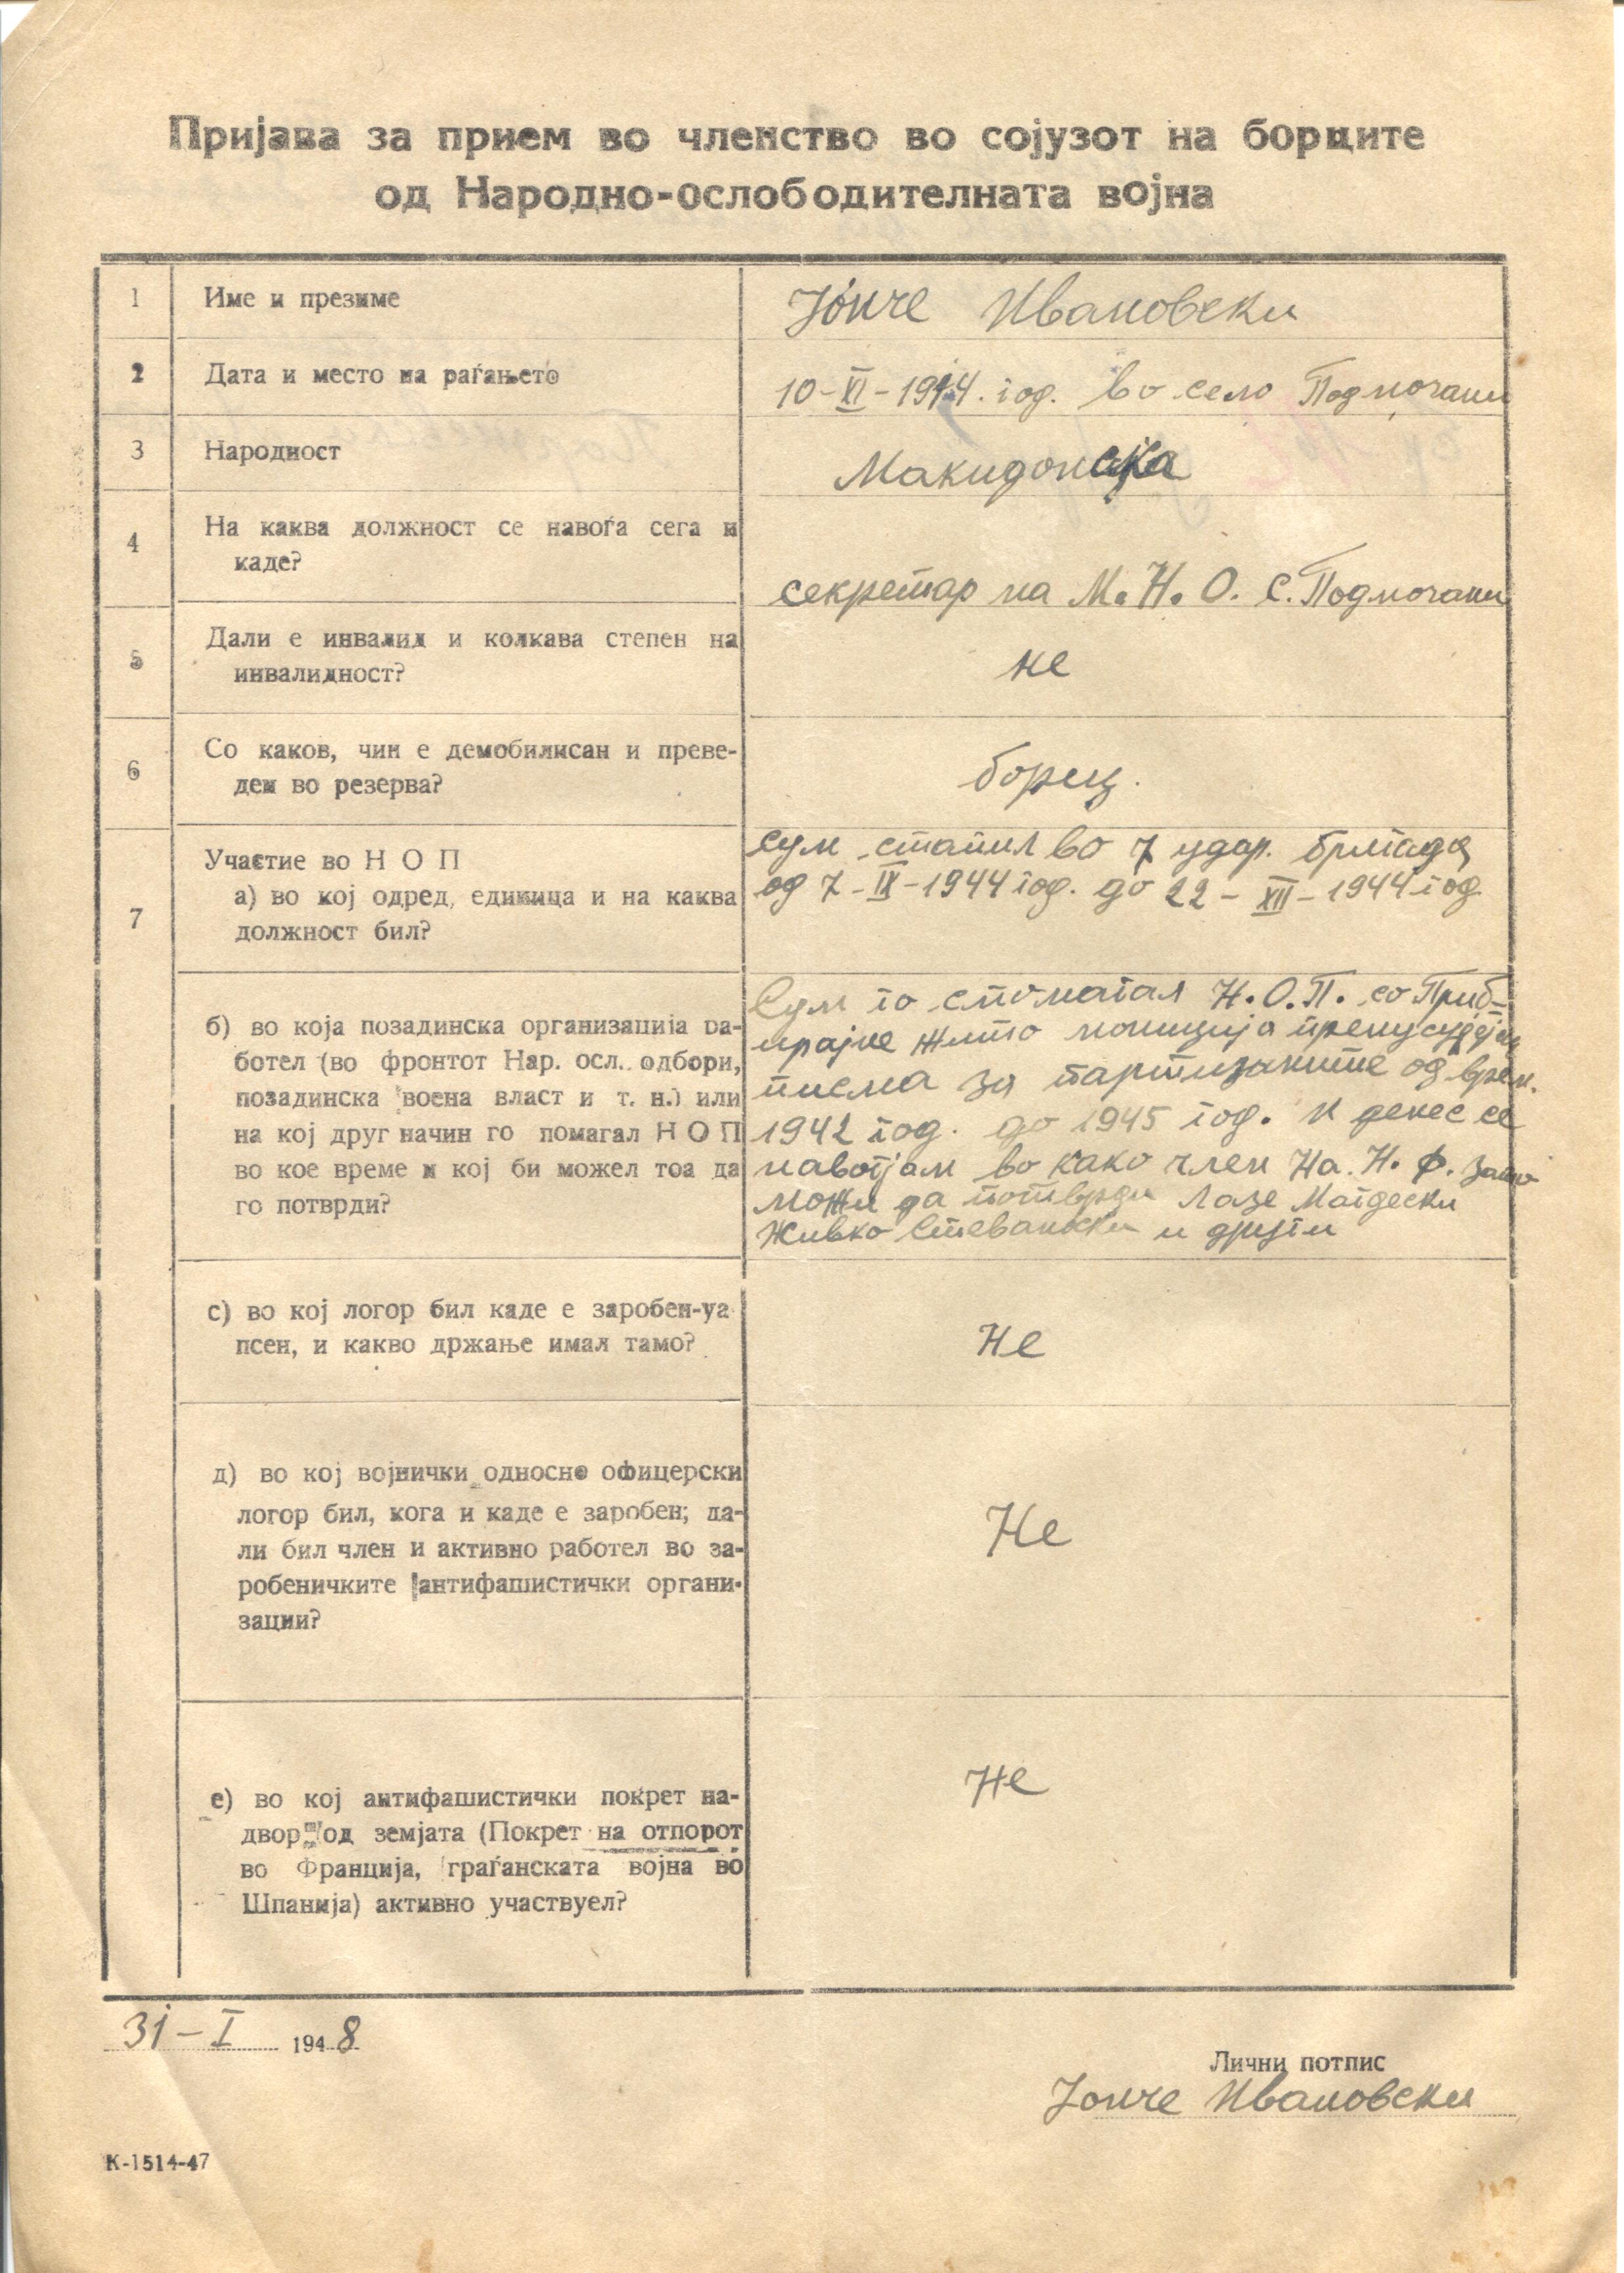 Пријава за прием во членство во сојузот на борците
од Народно-ослободителната војна
1 Име и презиме Јонче Ивановски
2 Дата и место на раѓањето 10-XI-1914. год. во село Подмочани
3 Народност Македонска
4 На каква должност се навоѓа сега и
каде?
секретар на М.Н.О. с. Подмочани
5 Дали е инвалид и колкава степен на
инвалидност?
не
6 Со каков, чин е демобилисан и преве-
дем во резерва?
борец.
7 Участие во Н О П
а) во кој одред, единица и на каква
должност бил?
сум стапил во 7 удар. бригада
од 7-IX-1944 год. до 22-XII-1944 год
б) во која позадинска организација ра-
ботел (во фронтот Нар. осл. одбори,
позадинска воена власт и т. н.) или
на кој друг начин го помагал Н О П
во кое време и кој би можел тоа да
го потврди?
Сум го спомагал Н.О.П. со Приб-
ирајне жито мониција
писма за партизаните од врем.
1942 год. до 1945 год. и денес се
навоѓам во како член На. Н. Ф.
можи да потврди Лазе Магдески
Живко Стевановски и други
с) во кој логор бил каде е заробен-уа
псен, и какво држање имал тамо?
Не
д) во кој војнички односно офицерски
логор бил, кога и каде е заробен; да-
ли бил член и активно работел во за-
робеничките антифашистички органи-
зации?
Не
е) во кој антифашистички покрет на-
двор од земјата (Покрет на отпорот
во Франција, граѓанската војна во
Шпанија) активно участвуел?
Не
31-I 1948
Лични потпис
Јонче Ивановски
К-1514-47